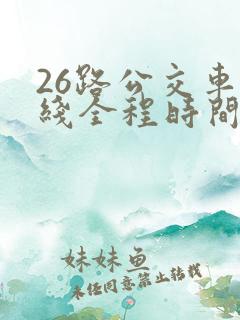 26路公交车
线全程时间
妹妹鱼
未经同意禁止转载